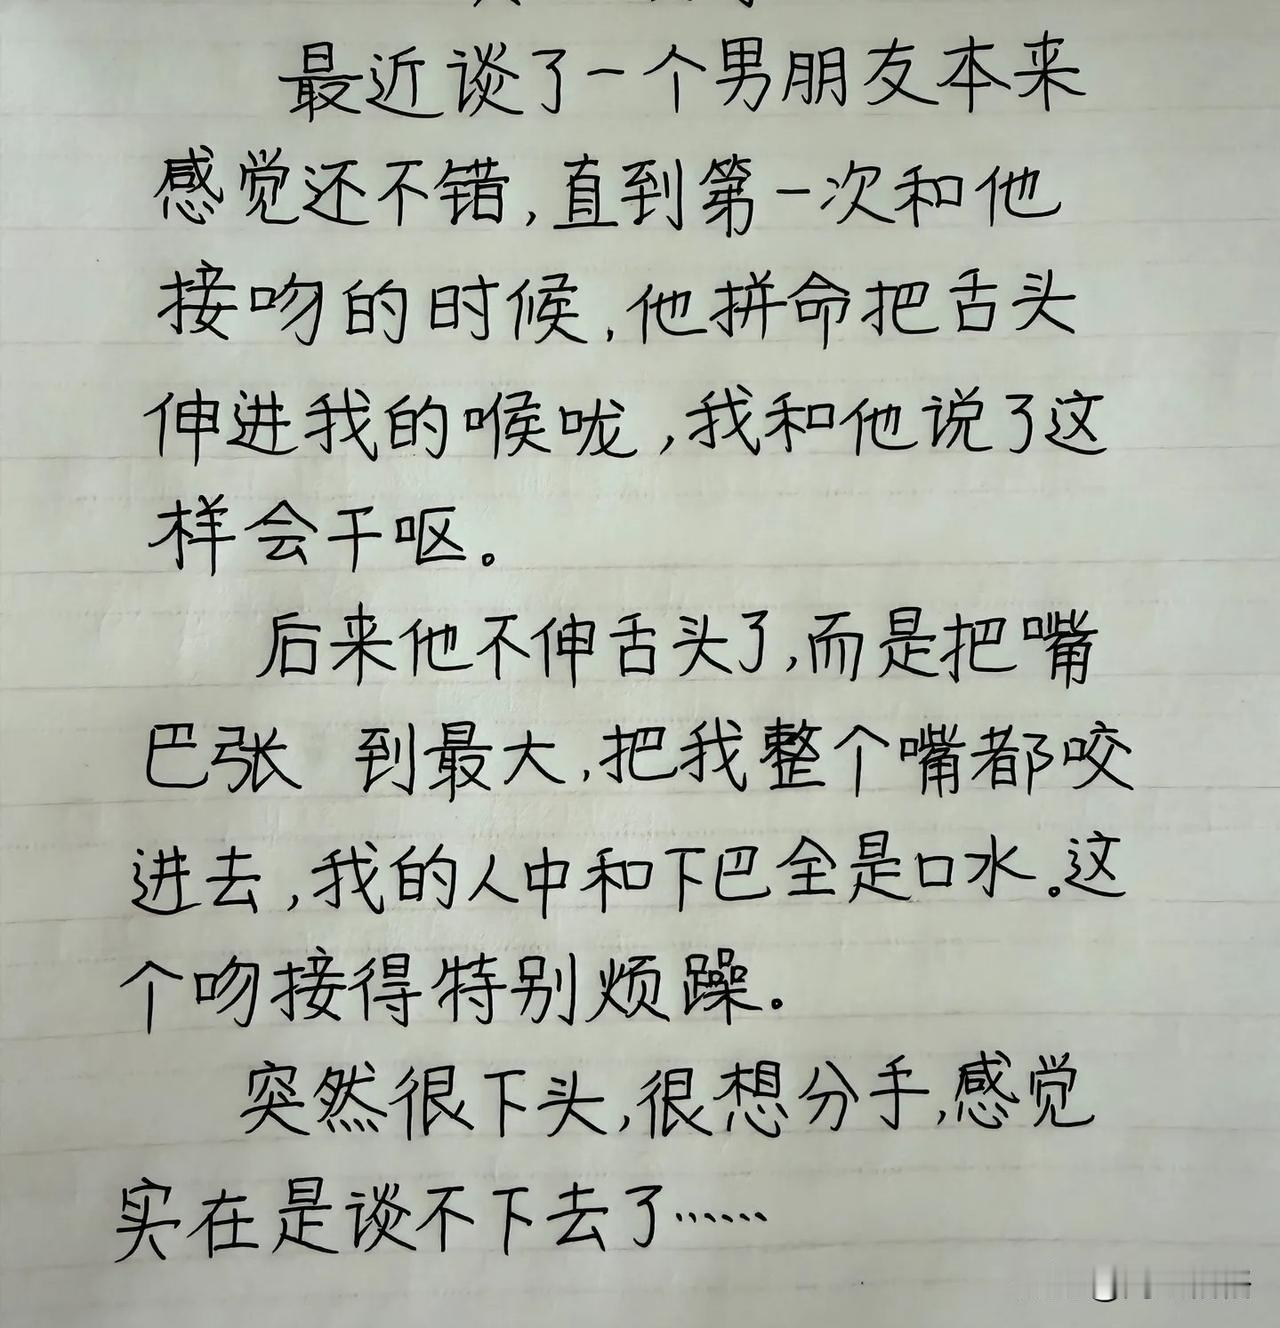 最近谈了一个男朋友本来
感觉还不错,直到第一次和他
接吻的时候,他拼命把舌头
伸进我的喉咙,我和他说了这
样会干呕。
后来他不伸舌头了,而是把嘴
巴张 到最大,把我整个嘴都咬
进去,我的人中和下巴全是口水。这
个吻接得特别烦躁。
突然很下头,很想分手,感觉
实在是谈不下去了……